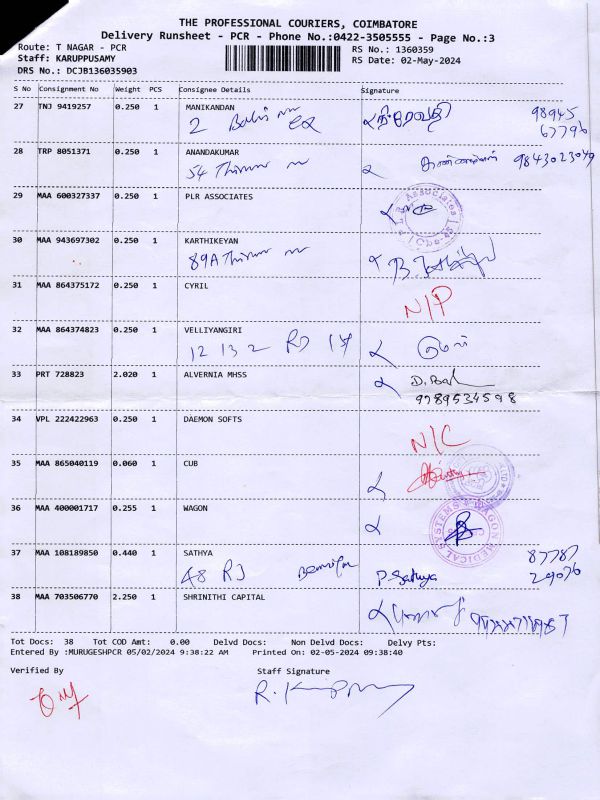 THE PROFESSIONAL COURIERS, COIMBATORE
Delivery Runsheet - PCR - Phone No.:0422-3505555 - Page No.:3
Route: T NAGAR - PCR
RS No.: 1360359
Staff: KARUPPUSAMY
RS Date: 02-May-2024
DRS No.: DCJB136035903
S No Consignment No Weight PCS Consignee Details Signature
27 TNJ 9419257 0.250 1 MANIKANDAN
2
98945
67796
28 TRP 8051371 0.250 1 ANANDAKUMAR
54
9843023049
29 MAA 600327337 0.250 1 PLR ASSOCIATES
30 MAA 943697302 0.250 1 KARTHIKEYAN
89A
31 MAA 864375172 0.250 1 CYRIL
N/P
32 MAA 864374823 0.250 1 VELLIYANGIRI
12 13 2
33 PRT 728823 2.020 1 ALVERNIA MHSS
9789534598
34 VPL 222422963 0.250 1 DAEMON SOFTS
N/C
35 MAA 865040119 0.060 1 CUB
36 MAA 400001717 0.255 1 WAGON
WAGON MEDICAL SYSTEMS
37 MAA 108189850 0.440 1 SATHYA
48
P. Sathya
87787
29076
38 MAA 703506770 2.250 1 SHRINITHI CAPITAL
Tot Docs: 38 Tot COD Amt: 0.00 Delvd Docs: Non Delvd Docs: Delvy Pts:
Entered By :MURUGESHPCR 05/02/2024 9:38:22 AM Printed On: 02-05-2024 09:38:40
Verified By Staff Signature